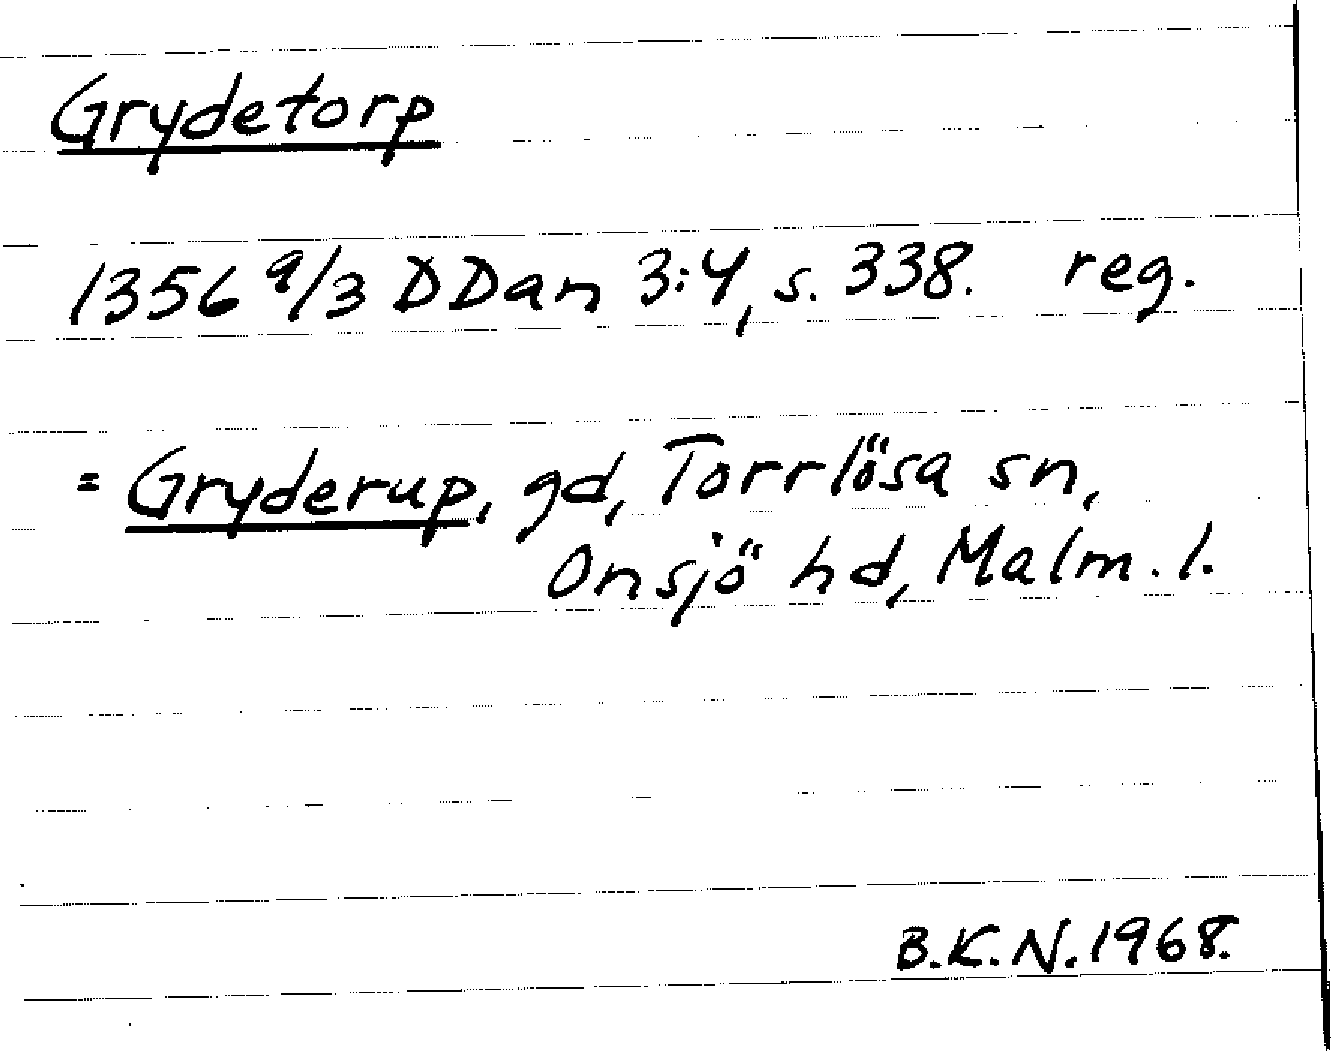 Grydetorp
1356 9/3 DDan 3:4, s. 338. reg.
= Gryderup, gd, Torrlösa sn,
Onsjö hd, Malm. l.
B.K.N. 1968.